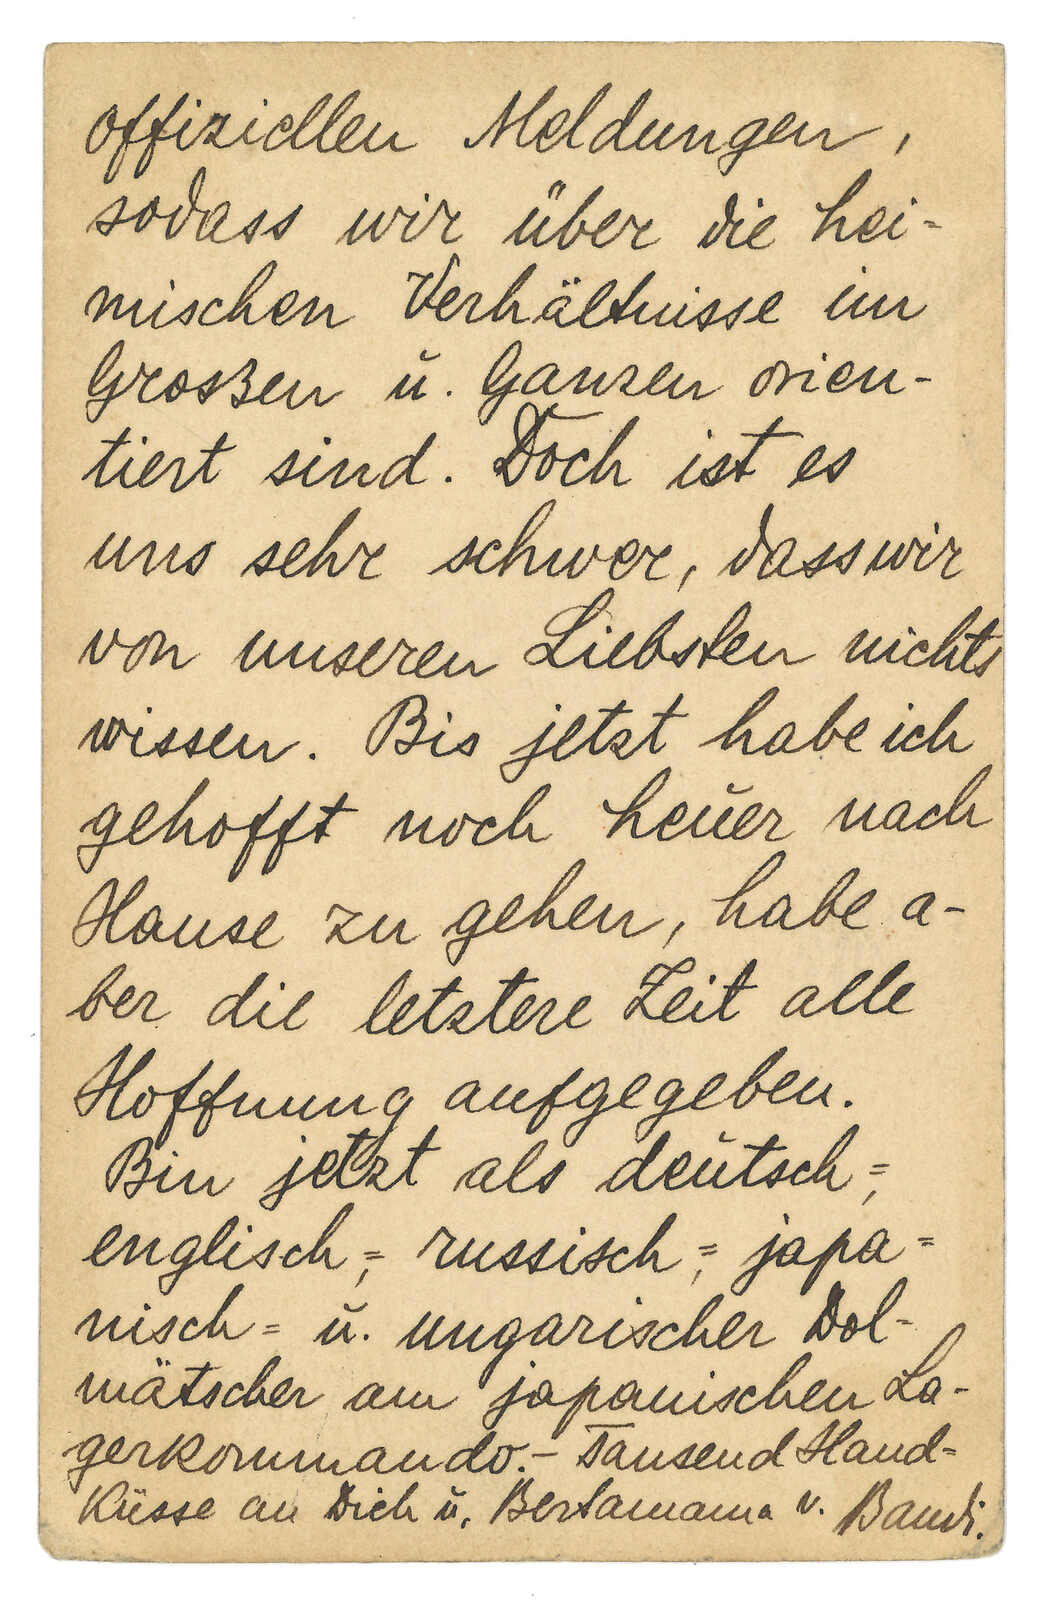 offiziellen Meldungen,
sodass wir über die hei-
mischen Verhältnisse im
Grossen u. Ganzen orien-
tiert sind. Doch ist es
uns sehr schwer, dass wir
von unseren Liebsten nichts
wissen. Bis jetzt habe ich
gehofft noch heuer nach
Hause zu gehen, habe a-
ber die letztere Zeit alle
Hoffnung aufgegeben.
Bin jetzt als deutsch=,
englisch=, russisch=, japa=
nisch= u. ungarischer Dol-
mätscher am japanischen La-
gerkommando.– Tausend Hand=
Küsse an Dich u. Bertamama v. Bandi.